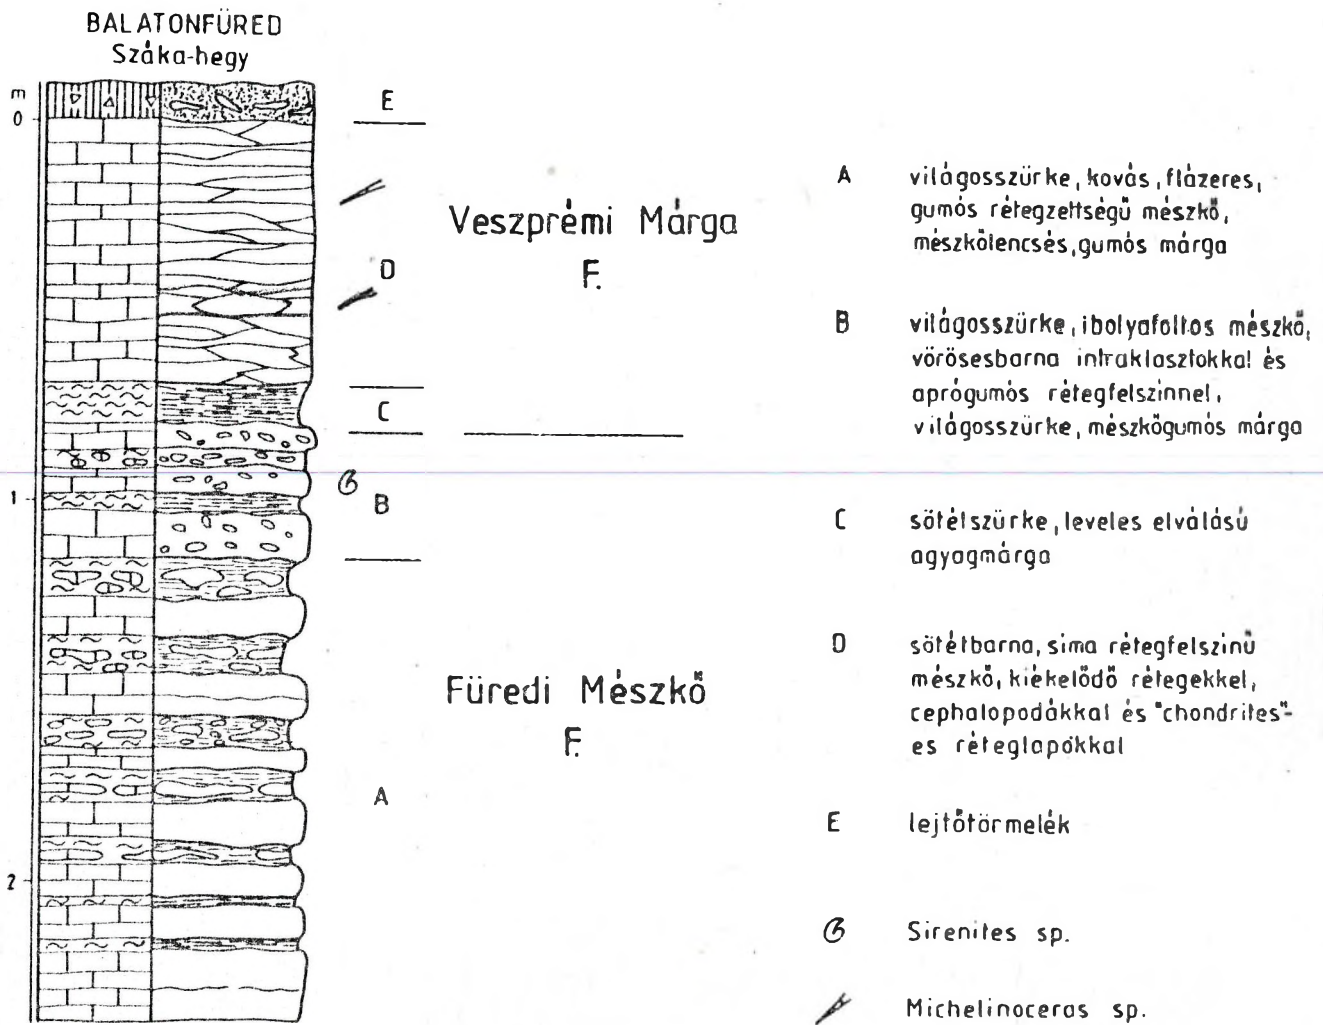 BALATONFÜRED
Száka-hegy
m
0
1
2
E
D
C
B
A
Veszprémi Márga
F.
Füredi Mészkő
F.
A világosszürke, kovás, flázeres,
gumós rétegzettségű mészkő,
mészkőlencsés, gumós márga
B világosszürke, ibolyafoltos mészkő,
vörösesbarna intraklasztokkal és
aprógumós rétegfelszinnel,
világosszürke, mészkőgumós márga
C sötétszürke, leveles elválású
agyagmárga
D sötétbarna, sima rétegfelszinű
mészkő, kiékelődő rétegekkel,
cephalopodákkal és "chondrites"-
es réteglapokkal
E lejtőtörmelék
Sirenites sp.
Michelinoceras sp.